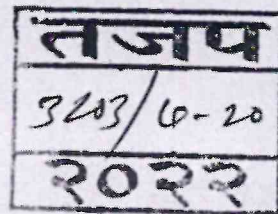 तजप
3203/6-20
२०२२